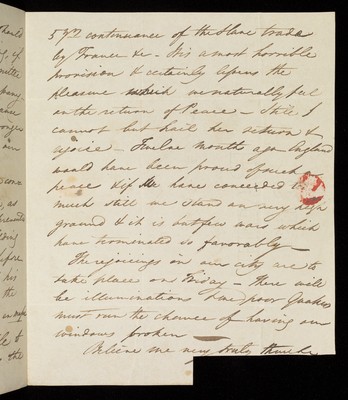 5 yrs continuance of the Slave trade
by France &c - Tis a most horrible
provision & certainly lessens the
pleasure which we naturally feel
on the return of Peace - Still I
cannot but hail her return &
rejoice - Twelve months ago England
would have been proud of such
peace & if we have conceded
much still we stand on very high
ground & it is but few wars which
have terminated so favorably -
The rejoicings in our city are to
take place on Friday - there will
be illuminations & we poor Quakers
must run the chance of having our
windows broken -
Believe me very truly thine